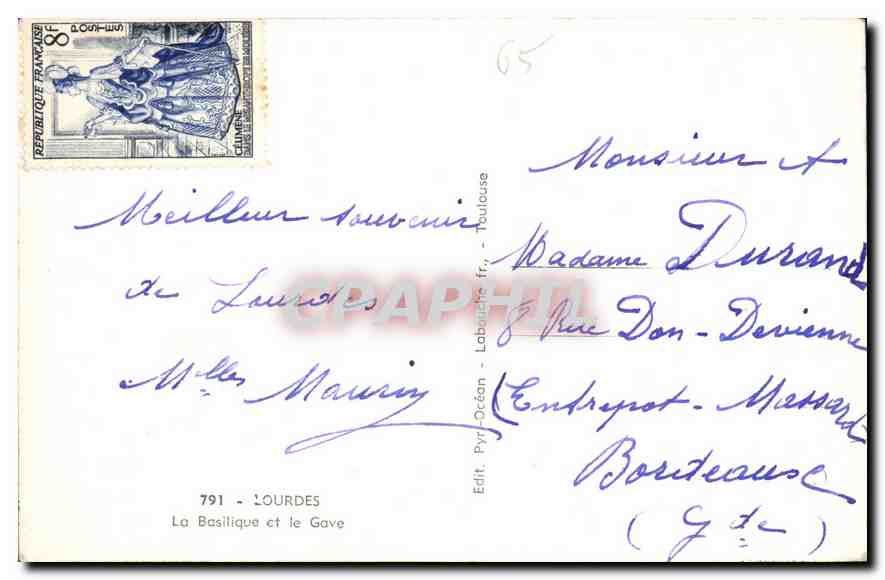 RÉPUBLIQUE FRANÇAISE
8F
POSTES
CÉLIMÈNE
DANS LE MISANTHROPE DE MOLIÈRE
65
Meilleur souvenir
de Lourdes
Mlles Maurin
791 - LOURDES
La Basilique et le Gave
Edit. Pyr-Océan - Labouche fr., - Toulouse
Monsieur A
Madame Durand
8 Rue Don-Devienne
(Entrepot-Massard
Bordeaux
(Gde)
CPAPHIL